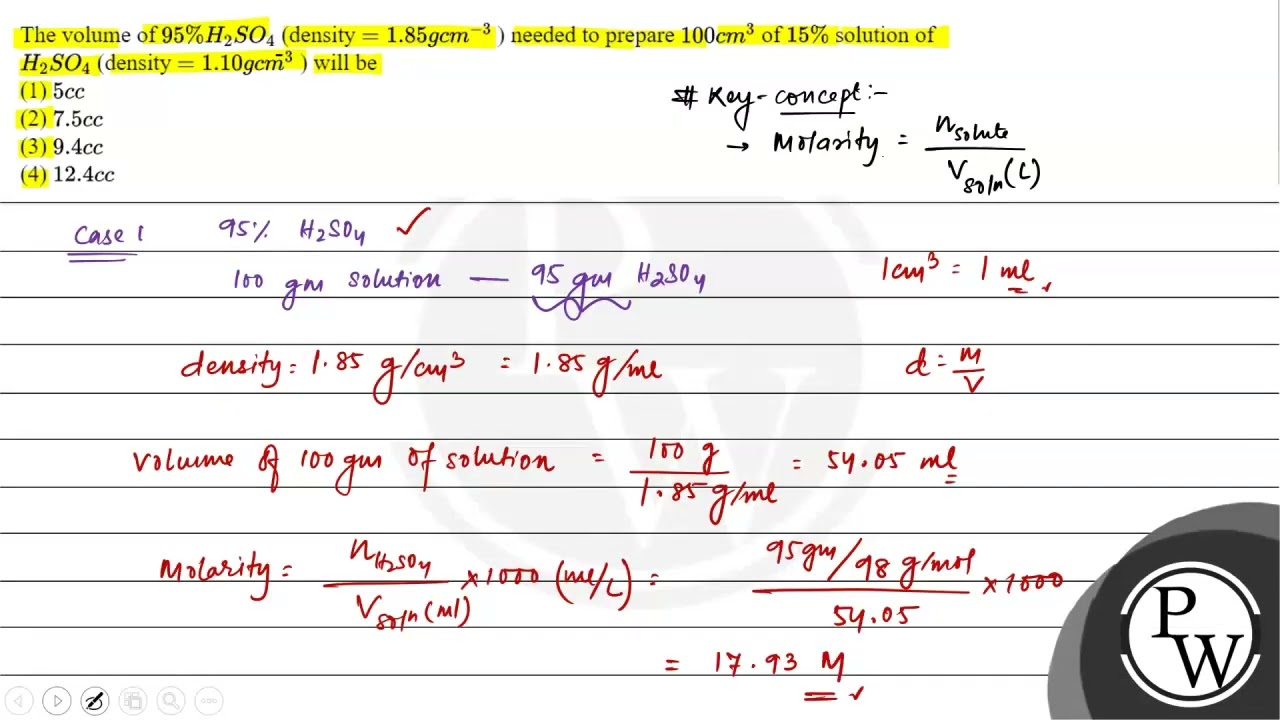 The volume of 95%H₂SO₄ (density = 1.85gcm⁻³) needed to prepare 100cm³ of 15% solution of
H₂SO₄ (density = 1.10gcm̄³) will be
(1) 5cc
(2) 7.5cc
(3) 9.4cc
(4) 12.4cc
# Key-concept:-
→ Molarity = nsolute / Vsoln(L)
Case 1 95% H₂SO₄ ✓
100 gm solution — 95 gm H₂SO₄
1cm³ = 1 ml
density = 1.85 g/cm³ = 1.85 g/ml
d = M/V
Volume of 100 gm of solution = 100 g / 1.85 g/ml = 54.05 ml
Molarity = nH₂SO₄ / Vsoln(ml) ×1000 (ml/L) = 95gm/98 g/mol / 54.05 ×1000
= 17.93 M
P
W
PW